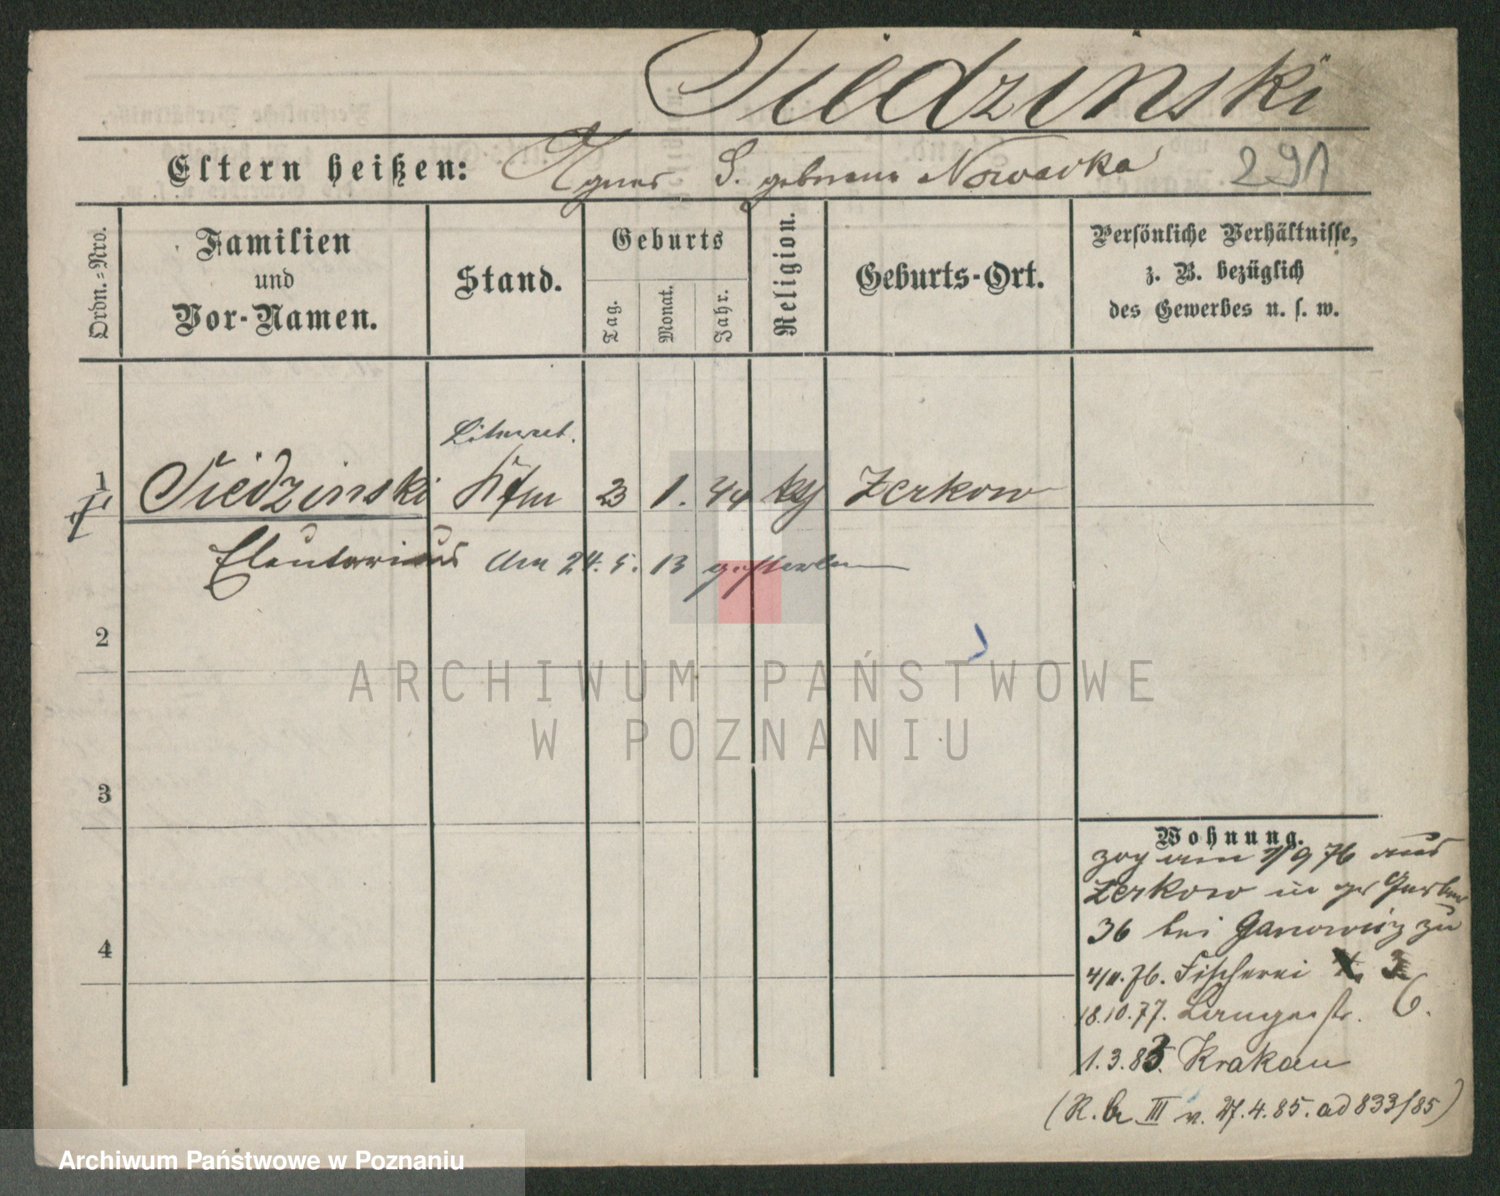 Siedzinski
Eltern heißen: Agnes S. geborene Nowacka 291
Ordn.-Nro.
Familien
und
Vor-Namen.
Stand.
Geburts
Tag.
Monat.
Jahr.
Religion.
Geburts-Ort.
Persönliche Verhältnisse,
z. B. bezüglich
des Gewerbes u. s. w.
Literat.
1 Siedzinski Kfm 23 1. 44 kth Zerkow
Eleutorius Am 24. 5. 13 gestorben
2
ARCHIWUM PAŃSTWOWE
W POZNANIU
3
4
Wohnung.
zog am 1/9 76 aus
Zerkow in gr Gerber
36 bei Ganowicz zu
4/11. 76. Fischerei 3
18.10.77. Langestr. 6.
1.3.83. Krakau
(R. br III v. 27.4.85. ad 833/85)
Archiwum Państwowe w Poznaniu